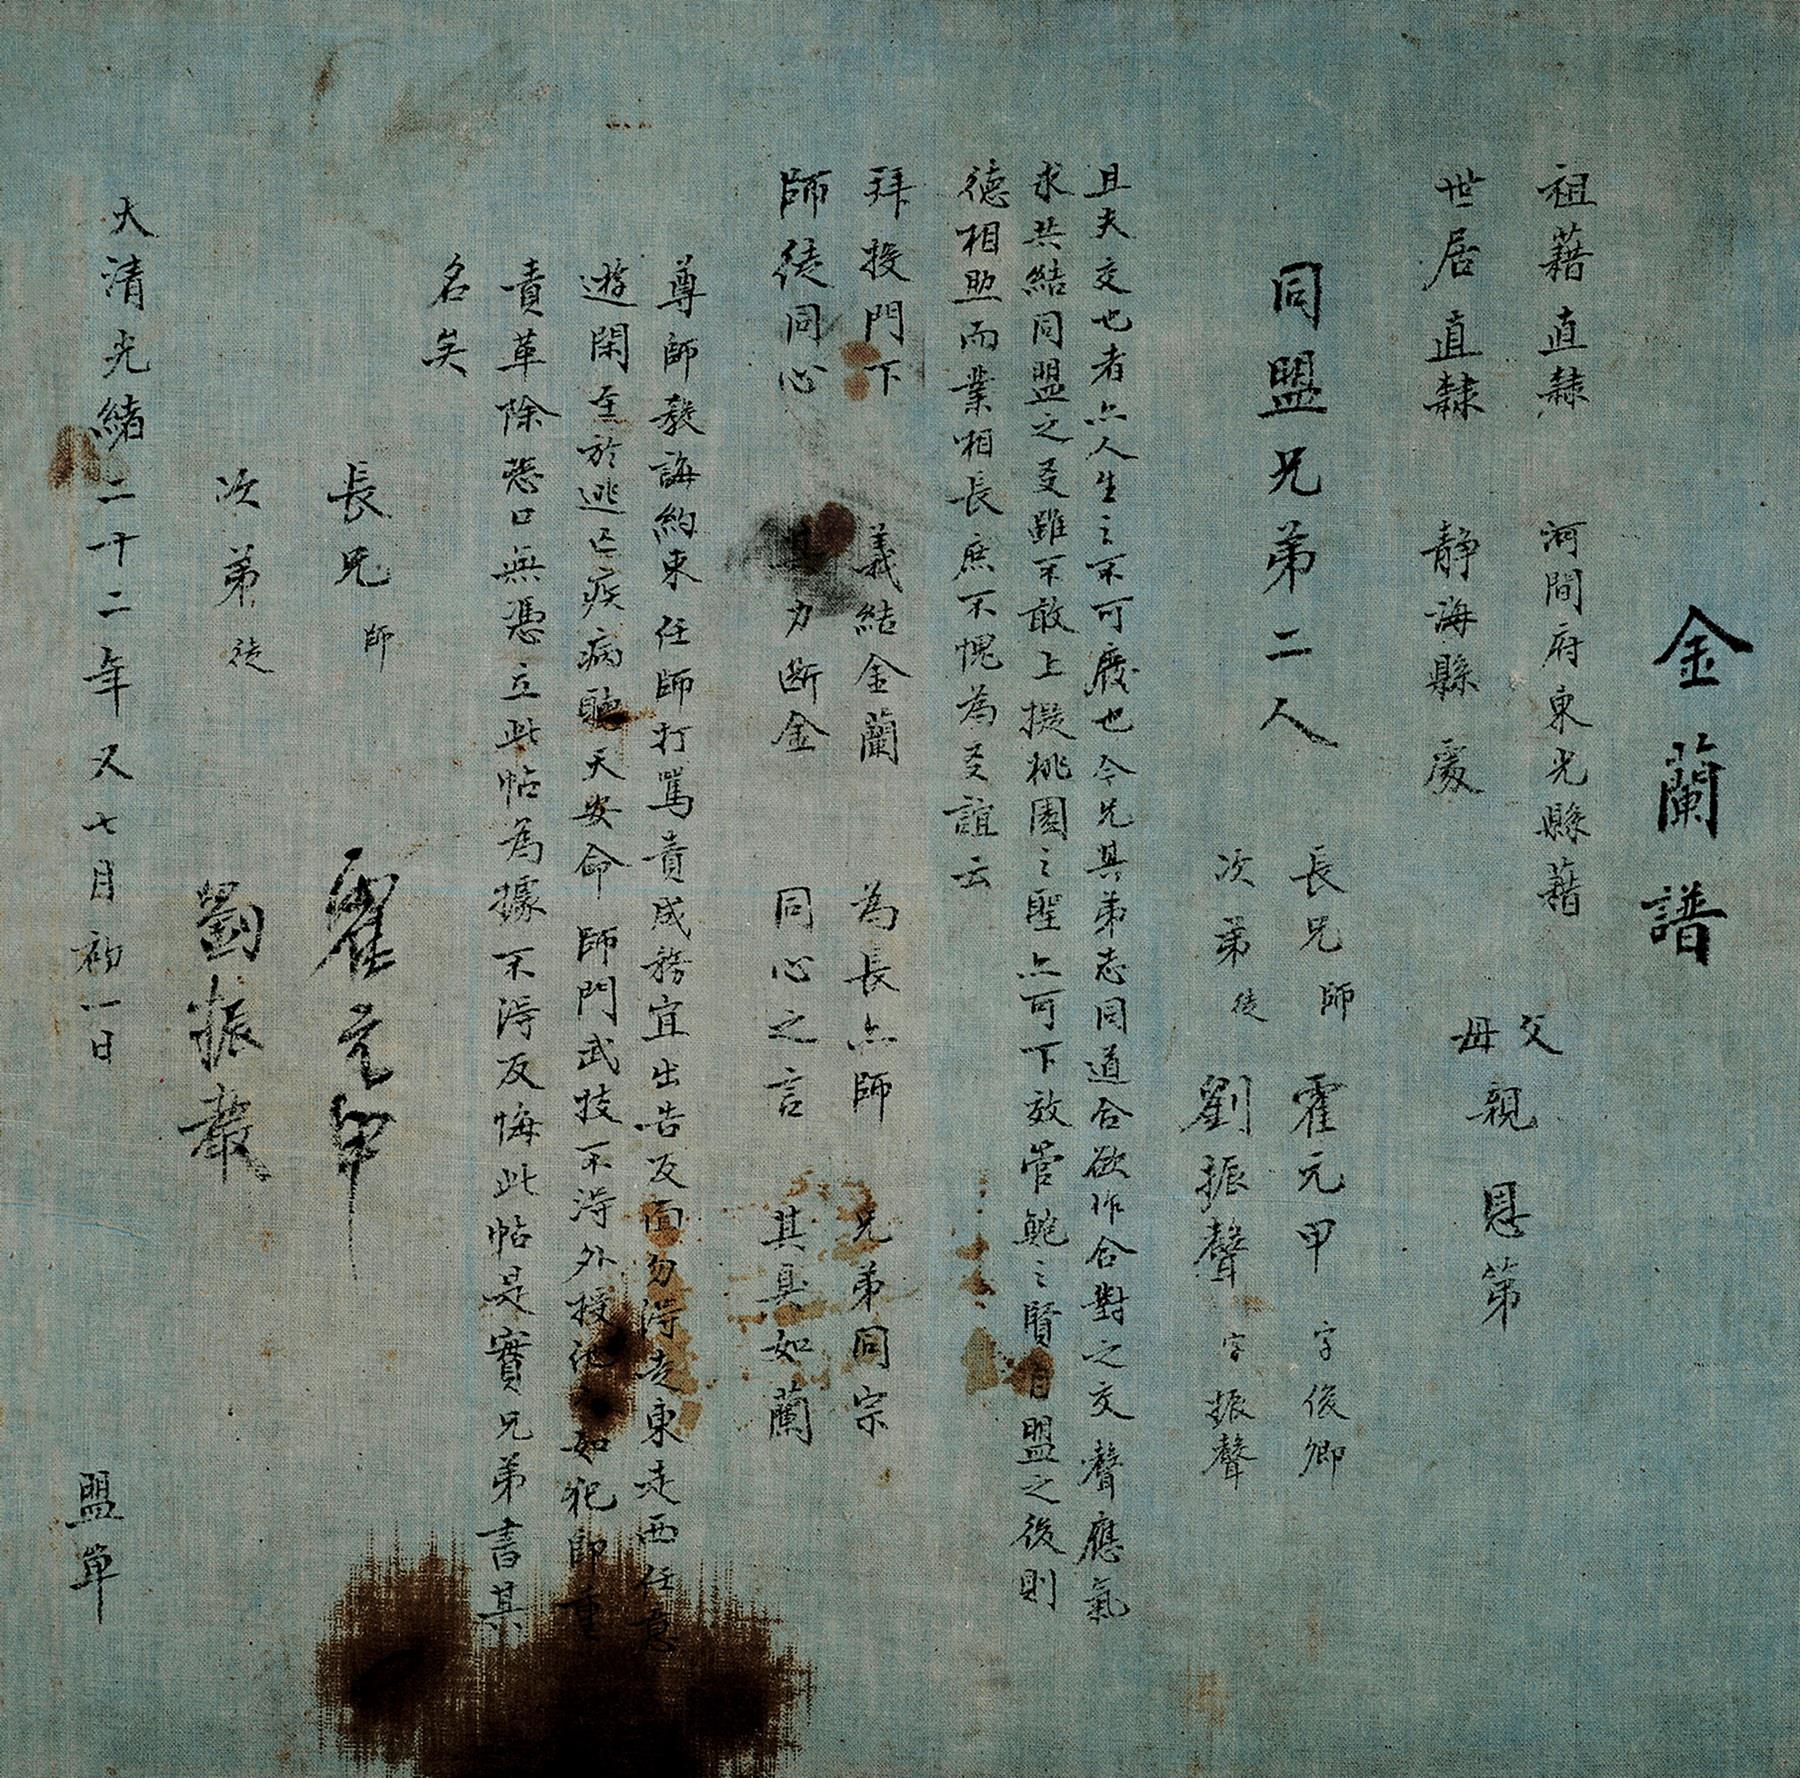 金蘭譜
祖藉直隸 河間府東光縣藉
世居直隸 靜海縣處
父
母
親 恩第
同盟兄弟二人
長兄師 霍元甲 字俊卿
次弟徒 劉振聲 字振聲
且夫交也者亦人生之不可廢也今兄與弟志同道合欲作合對之交聲應氣
求共結同盟之㕛雖不敢上擬桃園之聖亦可下放管鮑之賢自盟之後則
德相照而業相長庶不愧為㕛誼云
拜投門下 義結金蘭 為長亦師 兄弟同宗
師徒同心 其力斷金 同心之言 其臭如蘭
尊師教誨約束任師打罵責成務宜出告反面勿淂走東走西任意
遊閑至於逃亡疾病聽天安命師門武技不淂外授 如犯師重
責革除恐口無憑立此帖為據不淂反悔此帖是實兄弟書其
名矣
長兄師 霍元甲
次弟徒 劉振聲
大清光緒二十二年又七月初一日 盟單